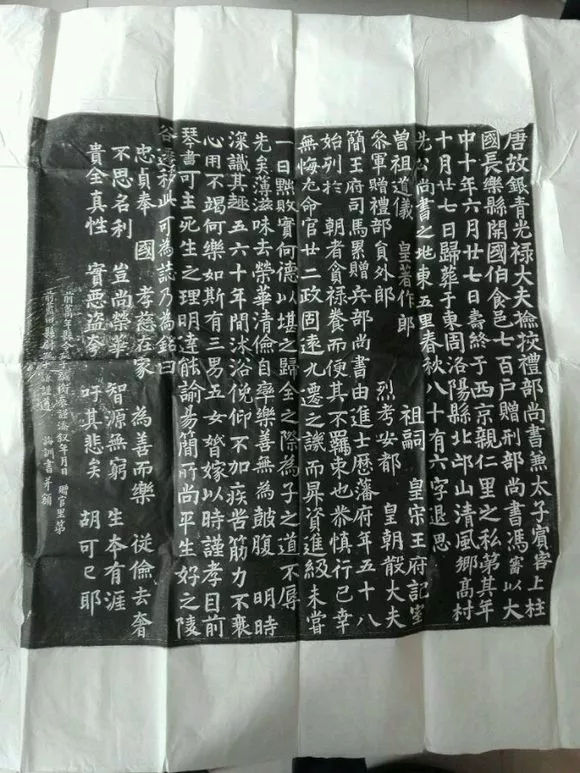 唐故銀青光祿大夫撿挍禮部尚書兼太子賓客上柱
國長樂縣開國伯食邑七百戶贈刑部尚書馮審以大
中十年六月廿七日壽終于西京親仁里之私第其年
十月廿七日歸葬于東周洛陽縣北邙山清風鄉高村
先公尚書之地東五里春秋八十有六字退思
曾祖道儀 皇著作郎 祖嗣 皇宗王府記室
叅軍贈禮部貟外郎 烈考安都 皇朝散大夫
簡王府司馬累贈兵部尚書由進士歷藩府年五十八
始列於 朝者貪祿養而使其不羈束也恭慎行已幸
無悔尤命官廿二政固違九遷之譏而昇資進級未嘗
一日黜敗實何德以堪之歸全之際為子之道不辱
先矣薄滋味去榮華清儉自率樂善無為鼓腹 明時
深識其趣五六十年閒沐浴俛仰不加疾苦筋力不衰
心用不竭何樂如斯有三男五女婚嫁以時謹孝目前
琴書可主死生之理明達能諭易簡所尚平生好之陵
谷遷移此可為誌乃為銘曰
忠貞奉 國 孝慈在家 為善而樂 從儉去奢
不思名利 豈尚榮華 智源無窮 生夲有涯
貴全真性 實惡盜夸 吁其悲矣 胡可已耶
前萬年縣 叙年月日 贈官里第
前 縣 書并額